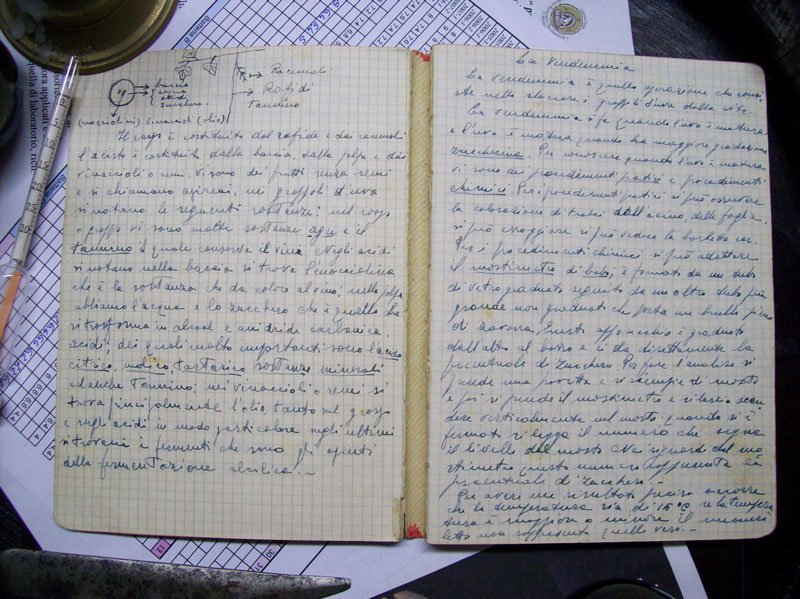 Racemoli
Rafidi
Tannino
buccia
acqua
acidi
zucchero
(nocciolini) vinacioli (olio)
Il raspo è costituito dal rafide e dai racemoli
l'acino è costituito dalla buccia, dalla polpa e dai
vinaccioli o semi. Vi sono dei frutti senza semi
e si chiamano apireni, nei grappoli d'uva
si notano le seguenti sostanze: nel raspo
o grappo vi sono molte sostanze e il
tannino il quale conserva il vino. Negli acidi
si notano nella buccia si trova l'inocciolina
che è la sostanza che da colore al vino; nella polpa
abbiamo l'acqua e lo zucchero che è quello che
si trasforma in alcool e anidride carbonica
acidi, dei quali molto importanti sono l'acido
citrico, malico tartarico sostanze minerali
ed anche tannino; nei vinaccioli o semi si
trova principalmente l'olio, tanto sul graspo
e sugli acidi in modo particolare sugli ultimi
si trovano i fermenti che sono gli agenti
della fermentazione alcolica.-
La Vendemmia
La vendemmia è quella operazione che consi-
ste nello staccare i grappoli d'uva dalla vite.
La vendemmia si fa quando l'uva è matura,
e l'uva è matura quando ha maggiore gradazione
zuccherina. Per conoscere quando l'uva è matura
vi sono dei procedimenti pratici e procedimenti
chimici. Per i procedimenti pratici si può osservare
la colorazione dell'acino, delle foglie,
si può assaggiare si può vedere la
Per i procedimenti chimici si può adottare
il mostimetro di babo, è formato da un tubo
di vetro graduato seguito da un altro tubo più
grande non graduato che porta un bulbo pieno
di zavorra. Questo apparecchio è graduato
dall'alto al basso e ci da direttamente la
percentuale di zucchero. Per fare l'analisi si
prende una provetta e si riempie di mosto
e poi si prende il mostimetro e si lascia scen
dere verticalmente nel mosto, quando si è
fermato si legge il numero che segna
il livello del mosto nei riguardi del mo
stimetro questo numero rappresenta la
percentuale di zucchero.-
Per avere un risultato preciso occorre
che la temperatura sia di 15°C se la tempera
tura è maggiore o minore il numero
letto non rappresenta quello vero.-